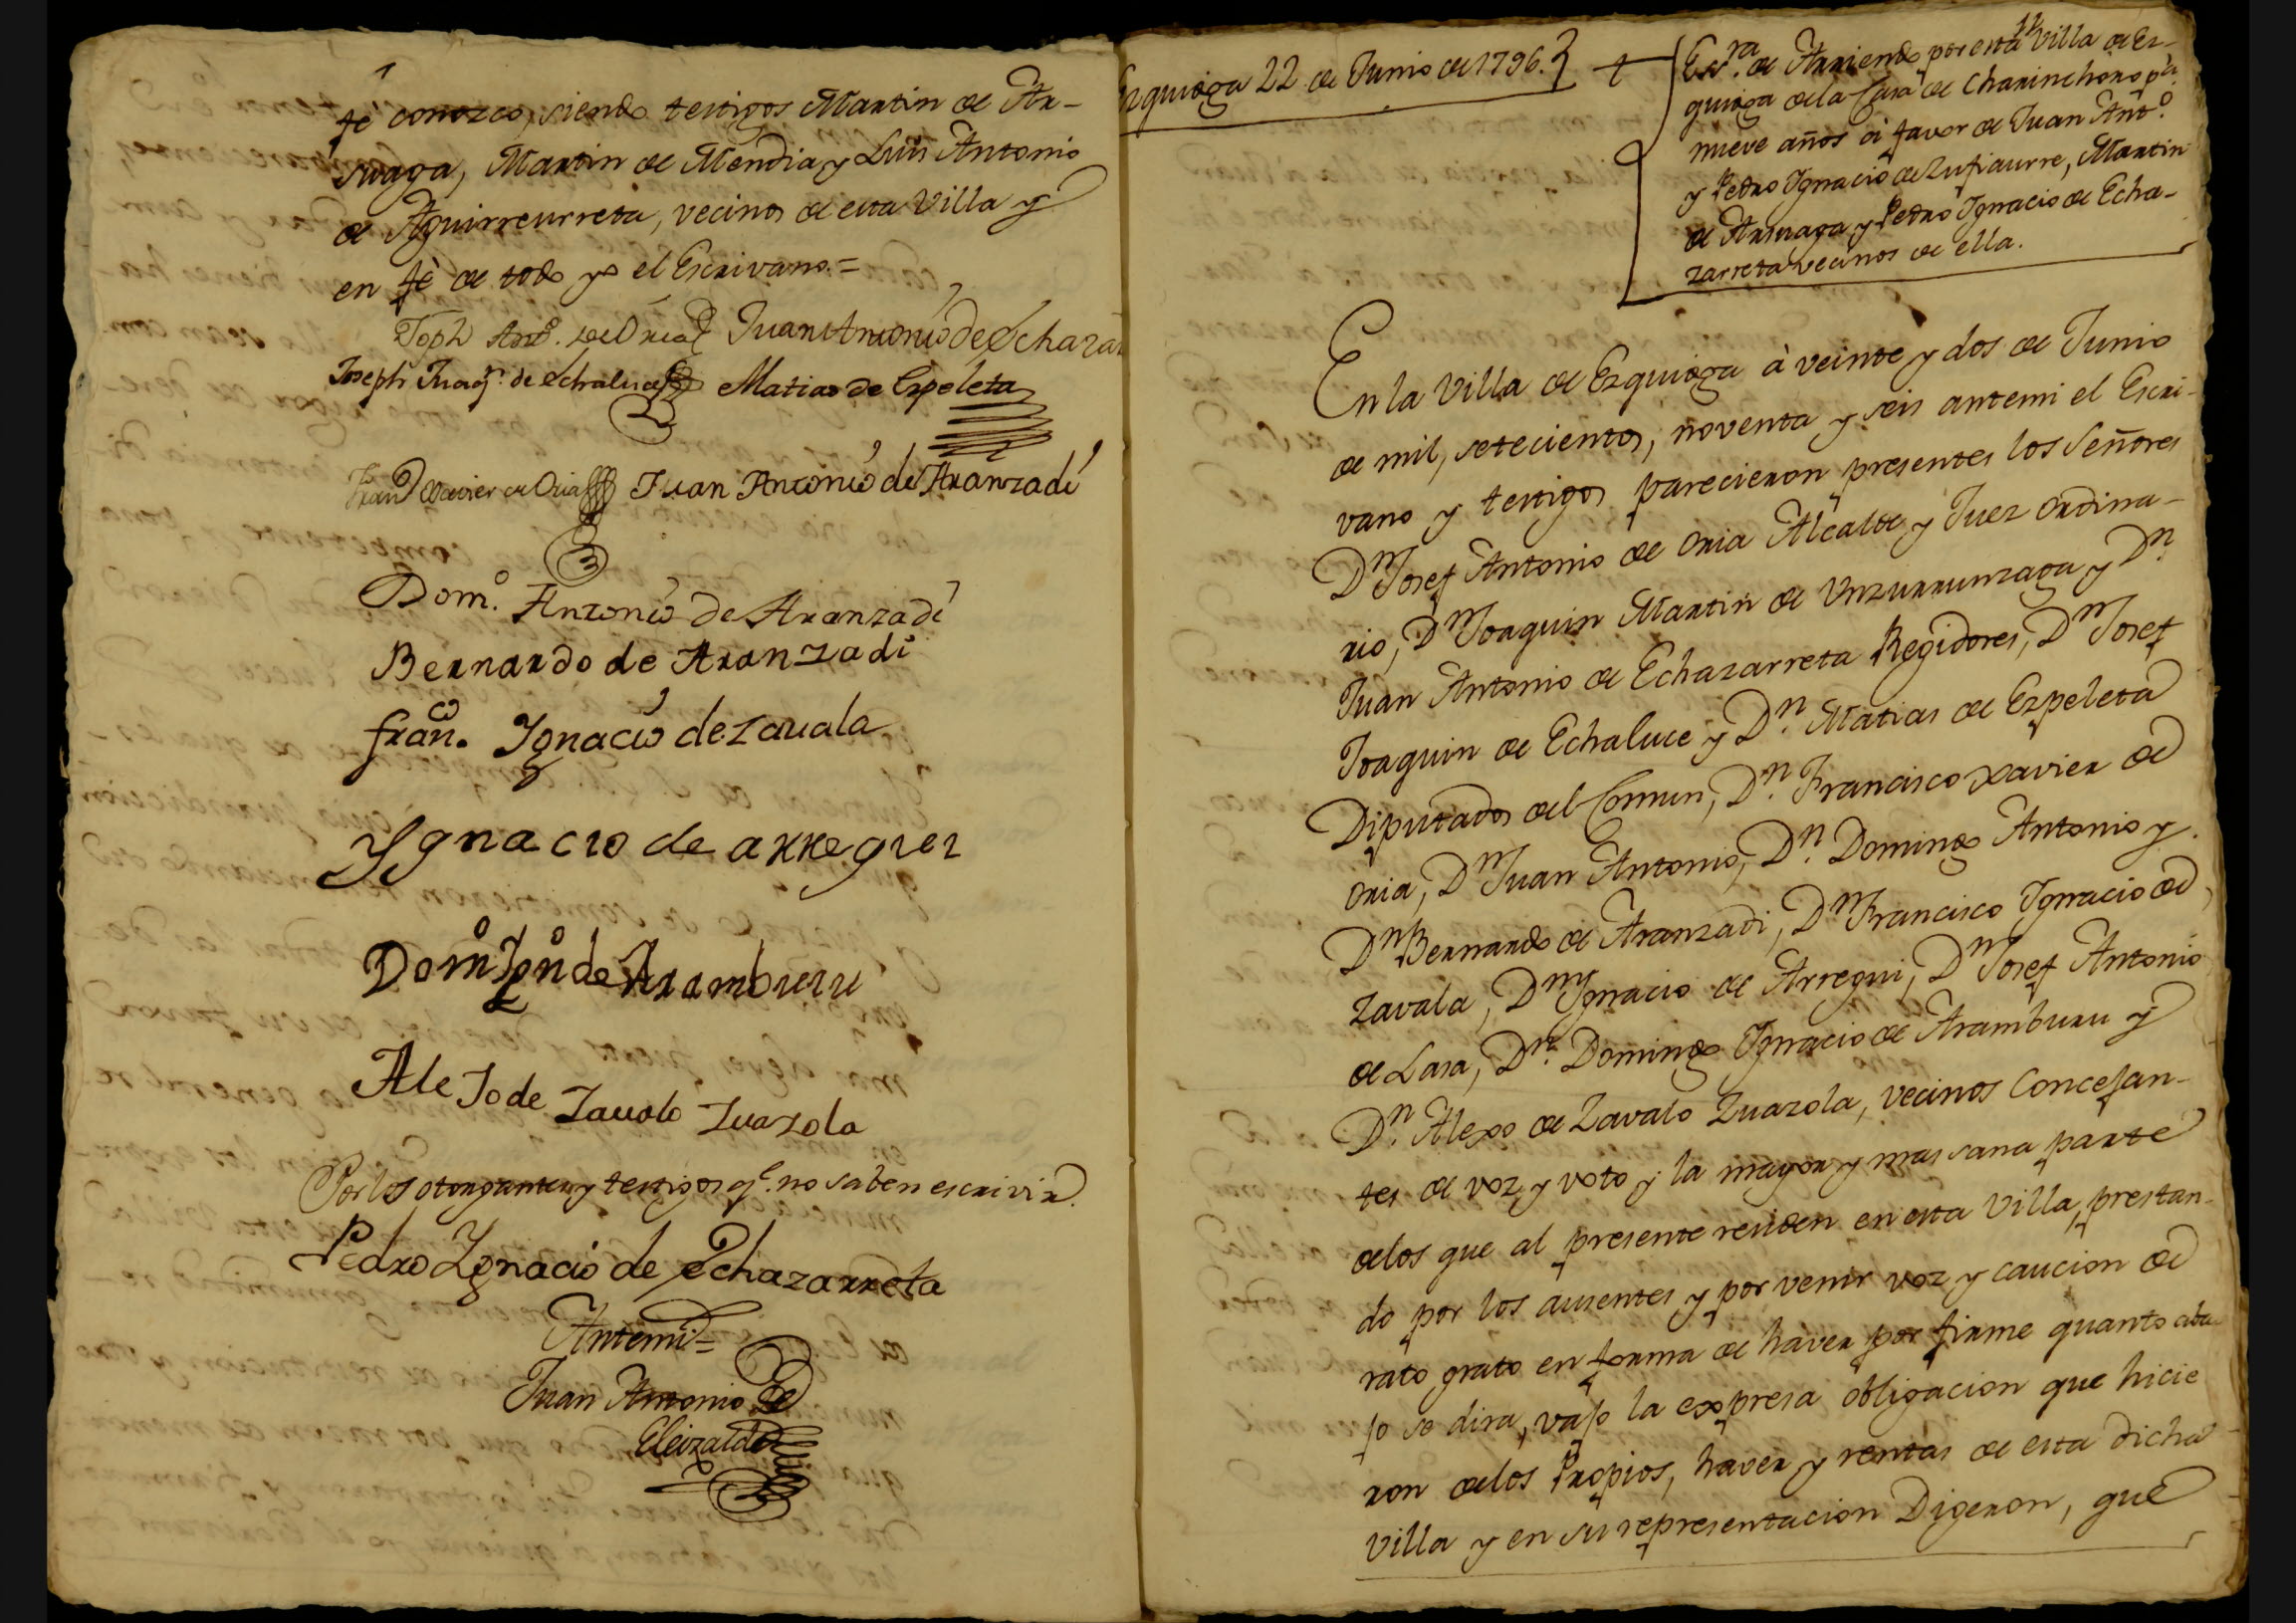 fè conozco, siendo testigos Martin de Ar-
suaga, Martin de Mendia y Luis Antonio
de Aguirreurreta, vecinos de esta Villa y
en fè de todo yo el Escrivano.=
Joph Antº. de Oria Juan Antonio de Echaza
Joseph Juaqⁿ. de Echaluce Matias de Ezpeleta
Franᶜᵒ Xavier de Oria Juan Antonio de Aranzadi
Domº. Antonio de Aranzadi
Bernardo de Aranzadi
franᶜᵒ. Ignacio de Zavala
Ygnacio de arregui
Domº Ignº de Aramburu
Alejo de Zavalo Zuazola
Por los otorgantes y testigos qᵉ. no saben escrivir.
Pedro Ignacio de Echazarreta
Antemi=
Juan Antonio de
Eleizalde
Ezquioga 22 de Junio de 1796.
11
Esᶜʳᵃ. de Arriendo por esta Villa de Ez-
quioga de la Casa de Charinchoro pʳ.
nueve años à favor de Juan Antº.
y Pedro Ignacio de Zufiaurre, Martin
de Arsuaga y Pedro Ignacio de Echa-
zarreta vecinos de ella.
En la Villa de Ezquioga à veinte y dos de Junio
de mil, setecientos, noventa y seis antemi el Escri-
vano y testigos parecieron presentes los Señores
Dⁿ Josef Antonio de Oria Alcalde y Juez ordina-
rio, Dⁿ Joaquin Martin de Unzurrunzaga y Dⁿ.
Juan Antonio de Echazarreta Regidores, Dⁿ Josef
Joaquin de Echaluce y Dⁿ. Matias de Ezpeleta
Diputados del Comun, Dⁿ. Francisco Xavier de
Oria, Dⁿ Juan Antonio, Dⁿ. Domingo Antonio y
Dⁿ Bernardo de Aranzadi, Dⁿ Francisco Ignacio de
Zavala, Dⁿ Ignacio de Arregui, Dⁿ Josef Antonio
de Lasa, Dⁿ. Domingo Ignacio de Aramburu y
Dⁿ. Alexo de Zavalo Zuazola, vecinos Concejan-
tes de voz y voto y la mayor y mas sana parte
delos que al presente residen en esta Villa, prestan-
do por los ausentes y por venir voz y caucion de
rato grato en forma de haver por firme quanto aba
jo se dira, vajo la expresa obligacion que hicie
ron delos Propios, haver y rentas de esta dicha
Villa y en su representacion Digeron, que